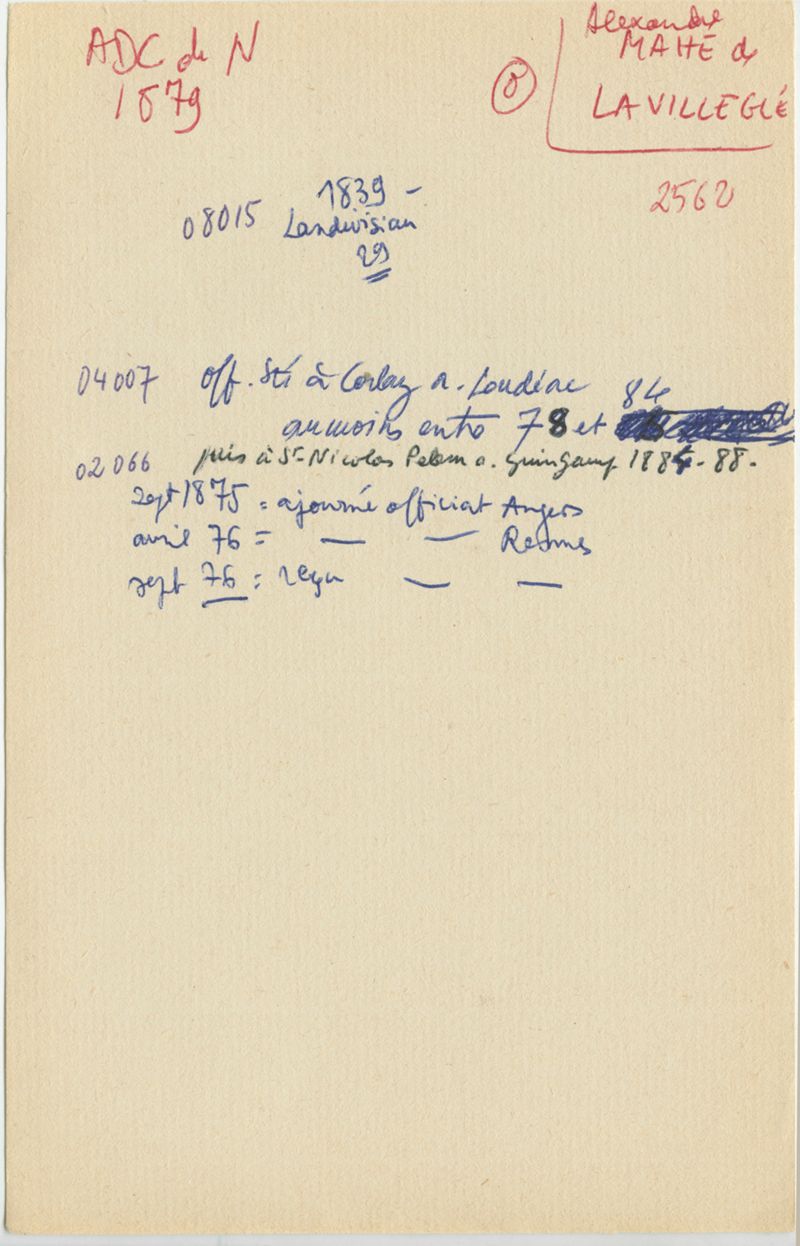 ADC de N
1879
Alexandre
MAHÉ de
LA VILLEGLÉ
2562
1839 -
08015 Landivisiau
29
04007 off. Sté à Corlay a. Loudéac 84
au moins entre 78 et
02066 puis à St-Nicolas Pelem a. Guingamp 1884-88.
Sept 1875 = ajourné officiat Angers
avril 76 = — — Rennes
sept 76 = reçu — —